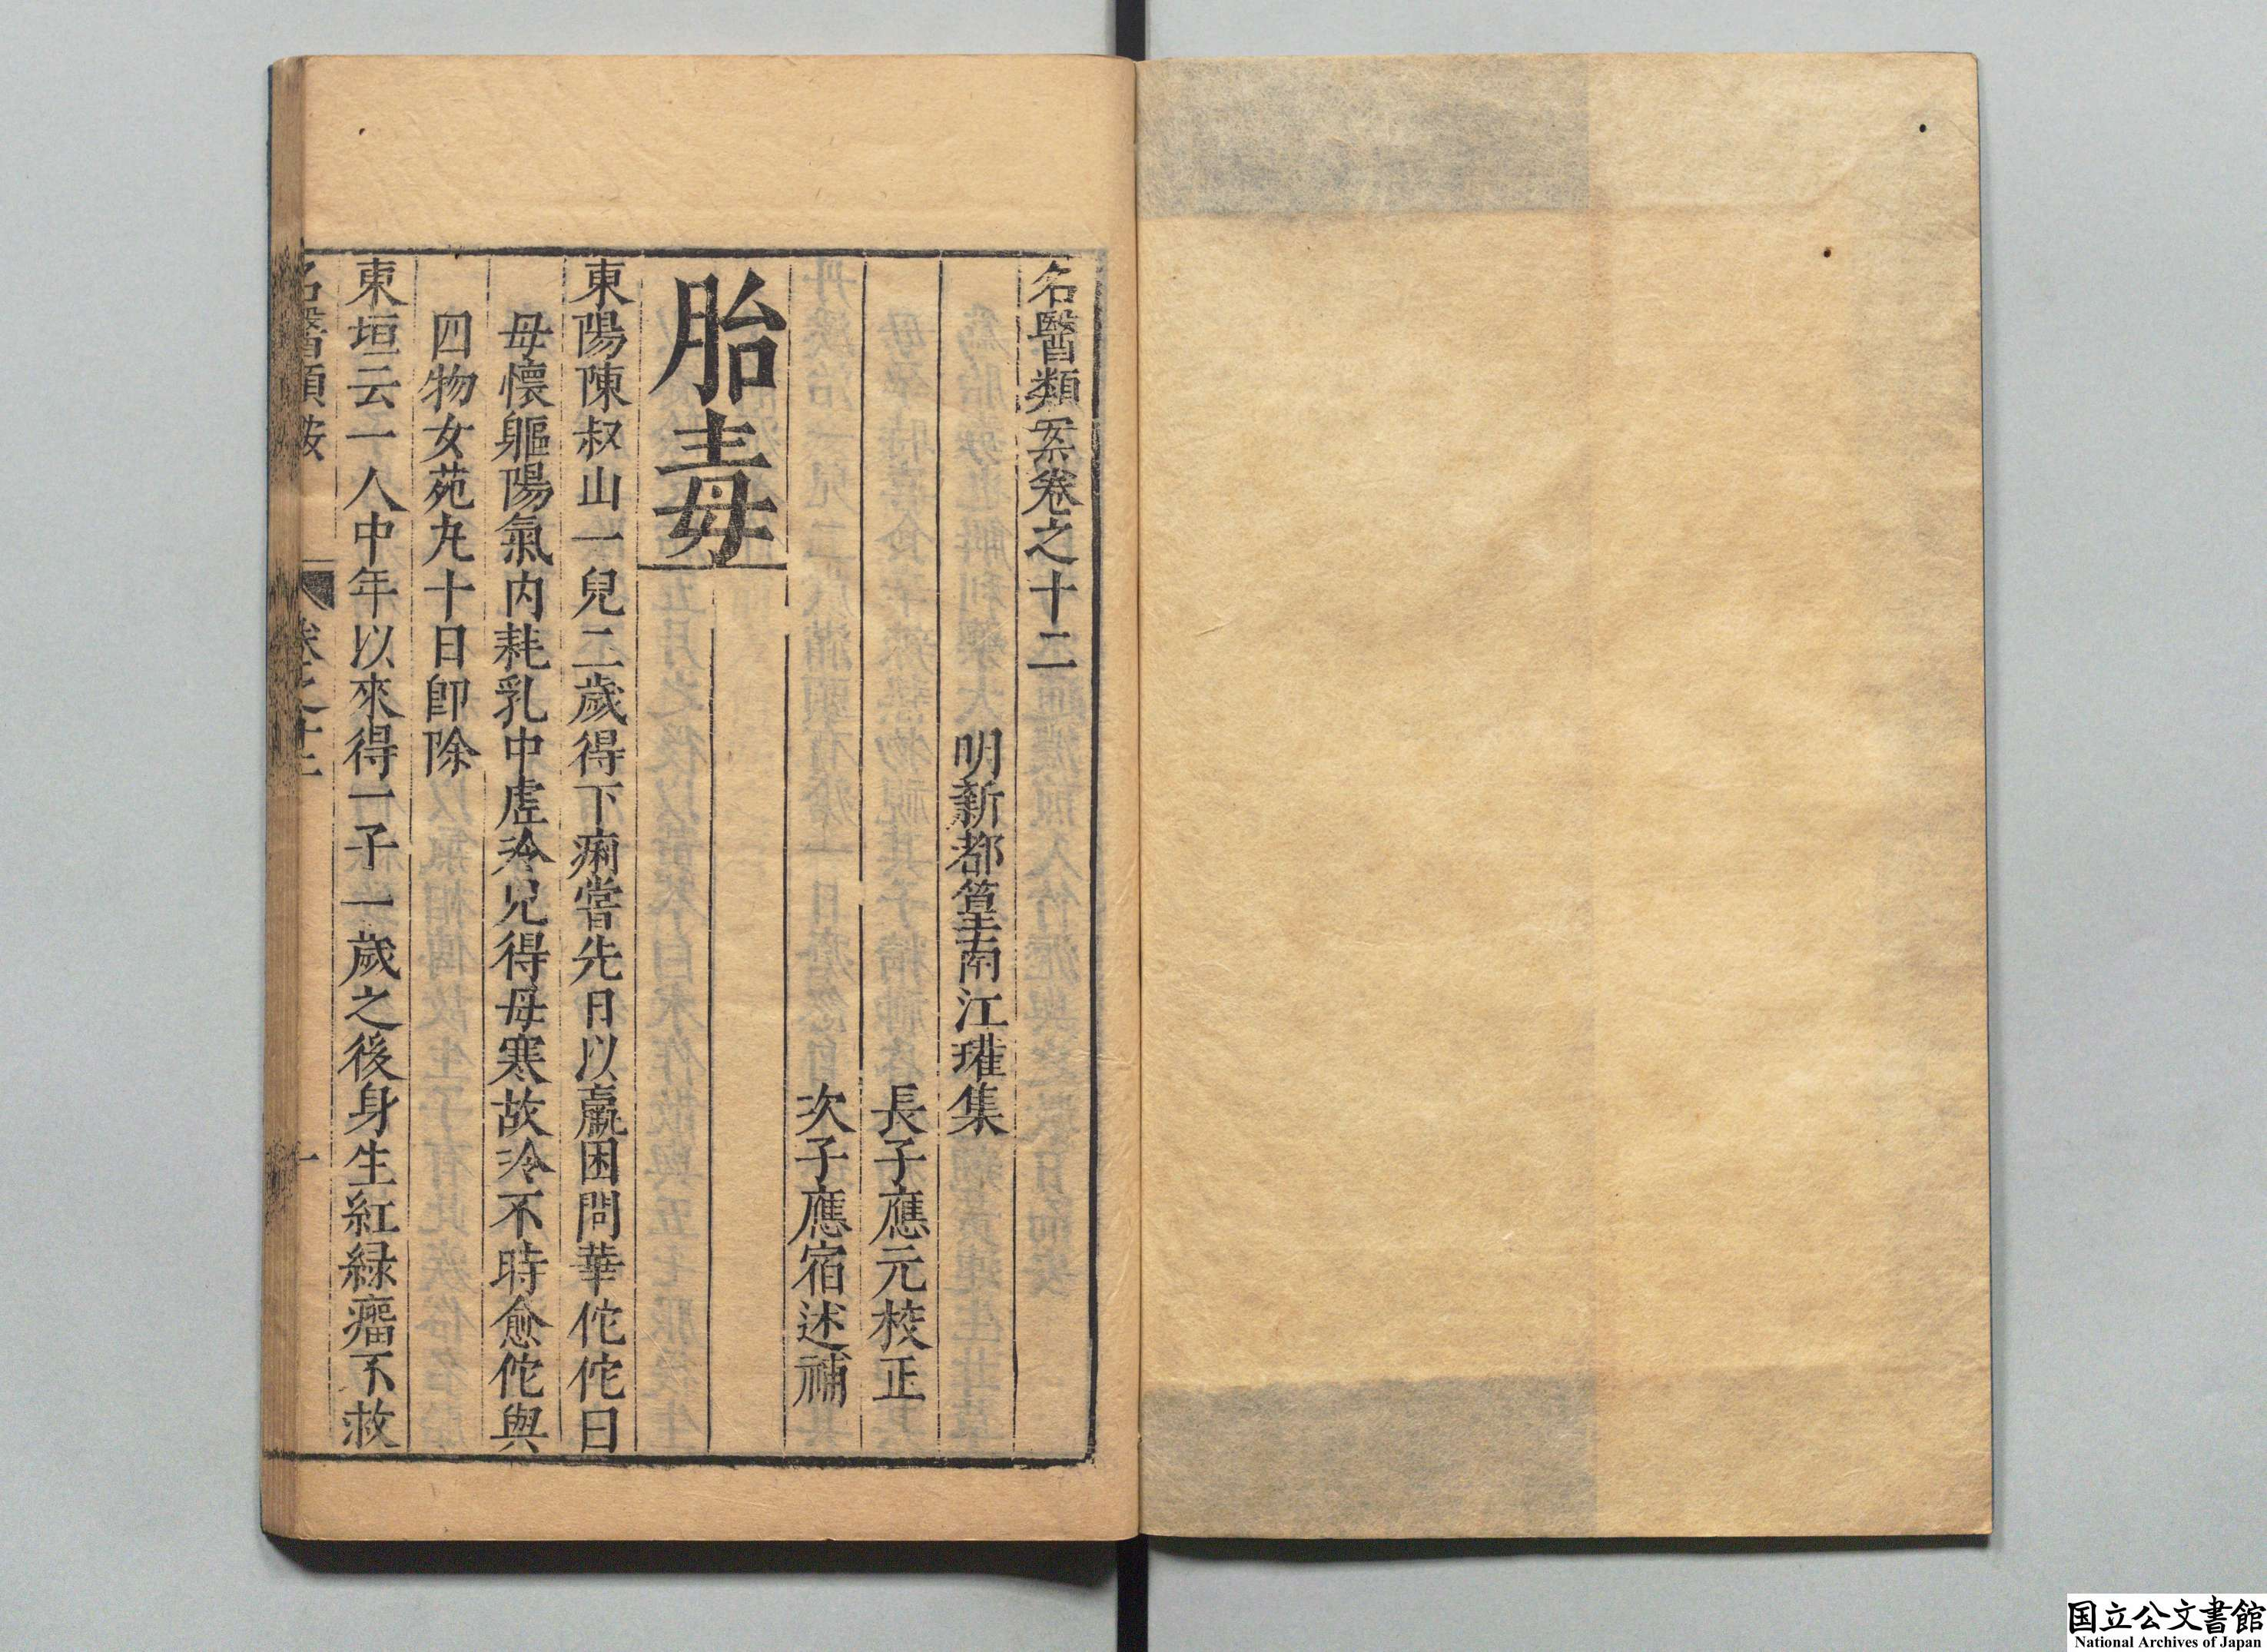 名醫類案卷之十二
明新都篁南江瓘集
長子應元校正
次子應宿述補
胎毒
東陽陳叔山一兒二歲得下痢嘗先日以羸困問華佗佗曰
母懷軀陽氣内耗乳中虛冷兒得母寒故冷不時愈佗與
四物女苑丸十日卽除
東垣云一人中年以來得一子一歲之後身生紅緑瘤不救
名醫類案
卷之十二
一
国立公文書館
National Archives of Japan